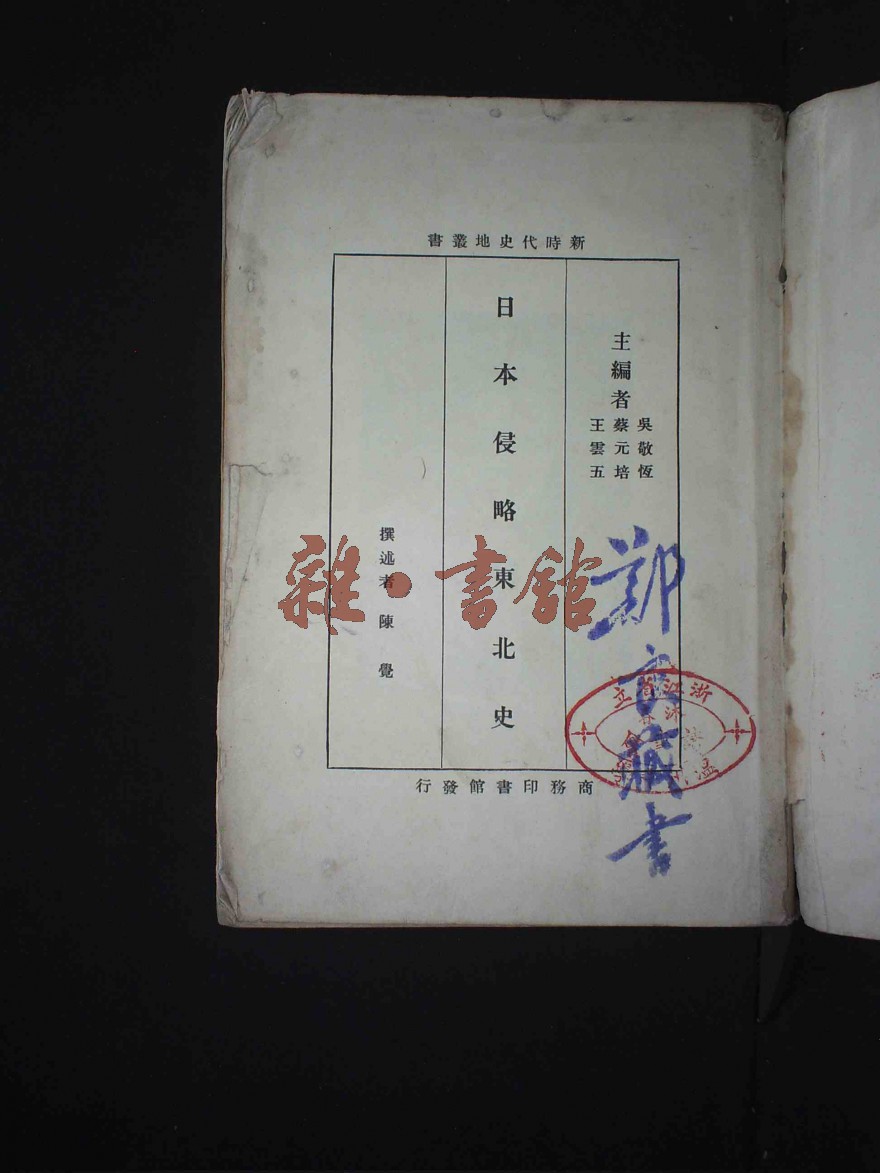 新時代史地叢書
主編者
吳敬恆
蔡元培
王雲五
日本侵略東北史
撰述者 陳覺
商務印書館發行
雜·書館
藏書
浙江省立